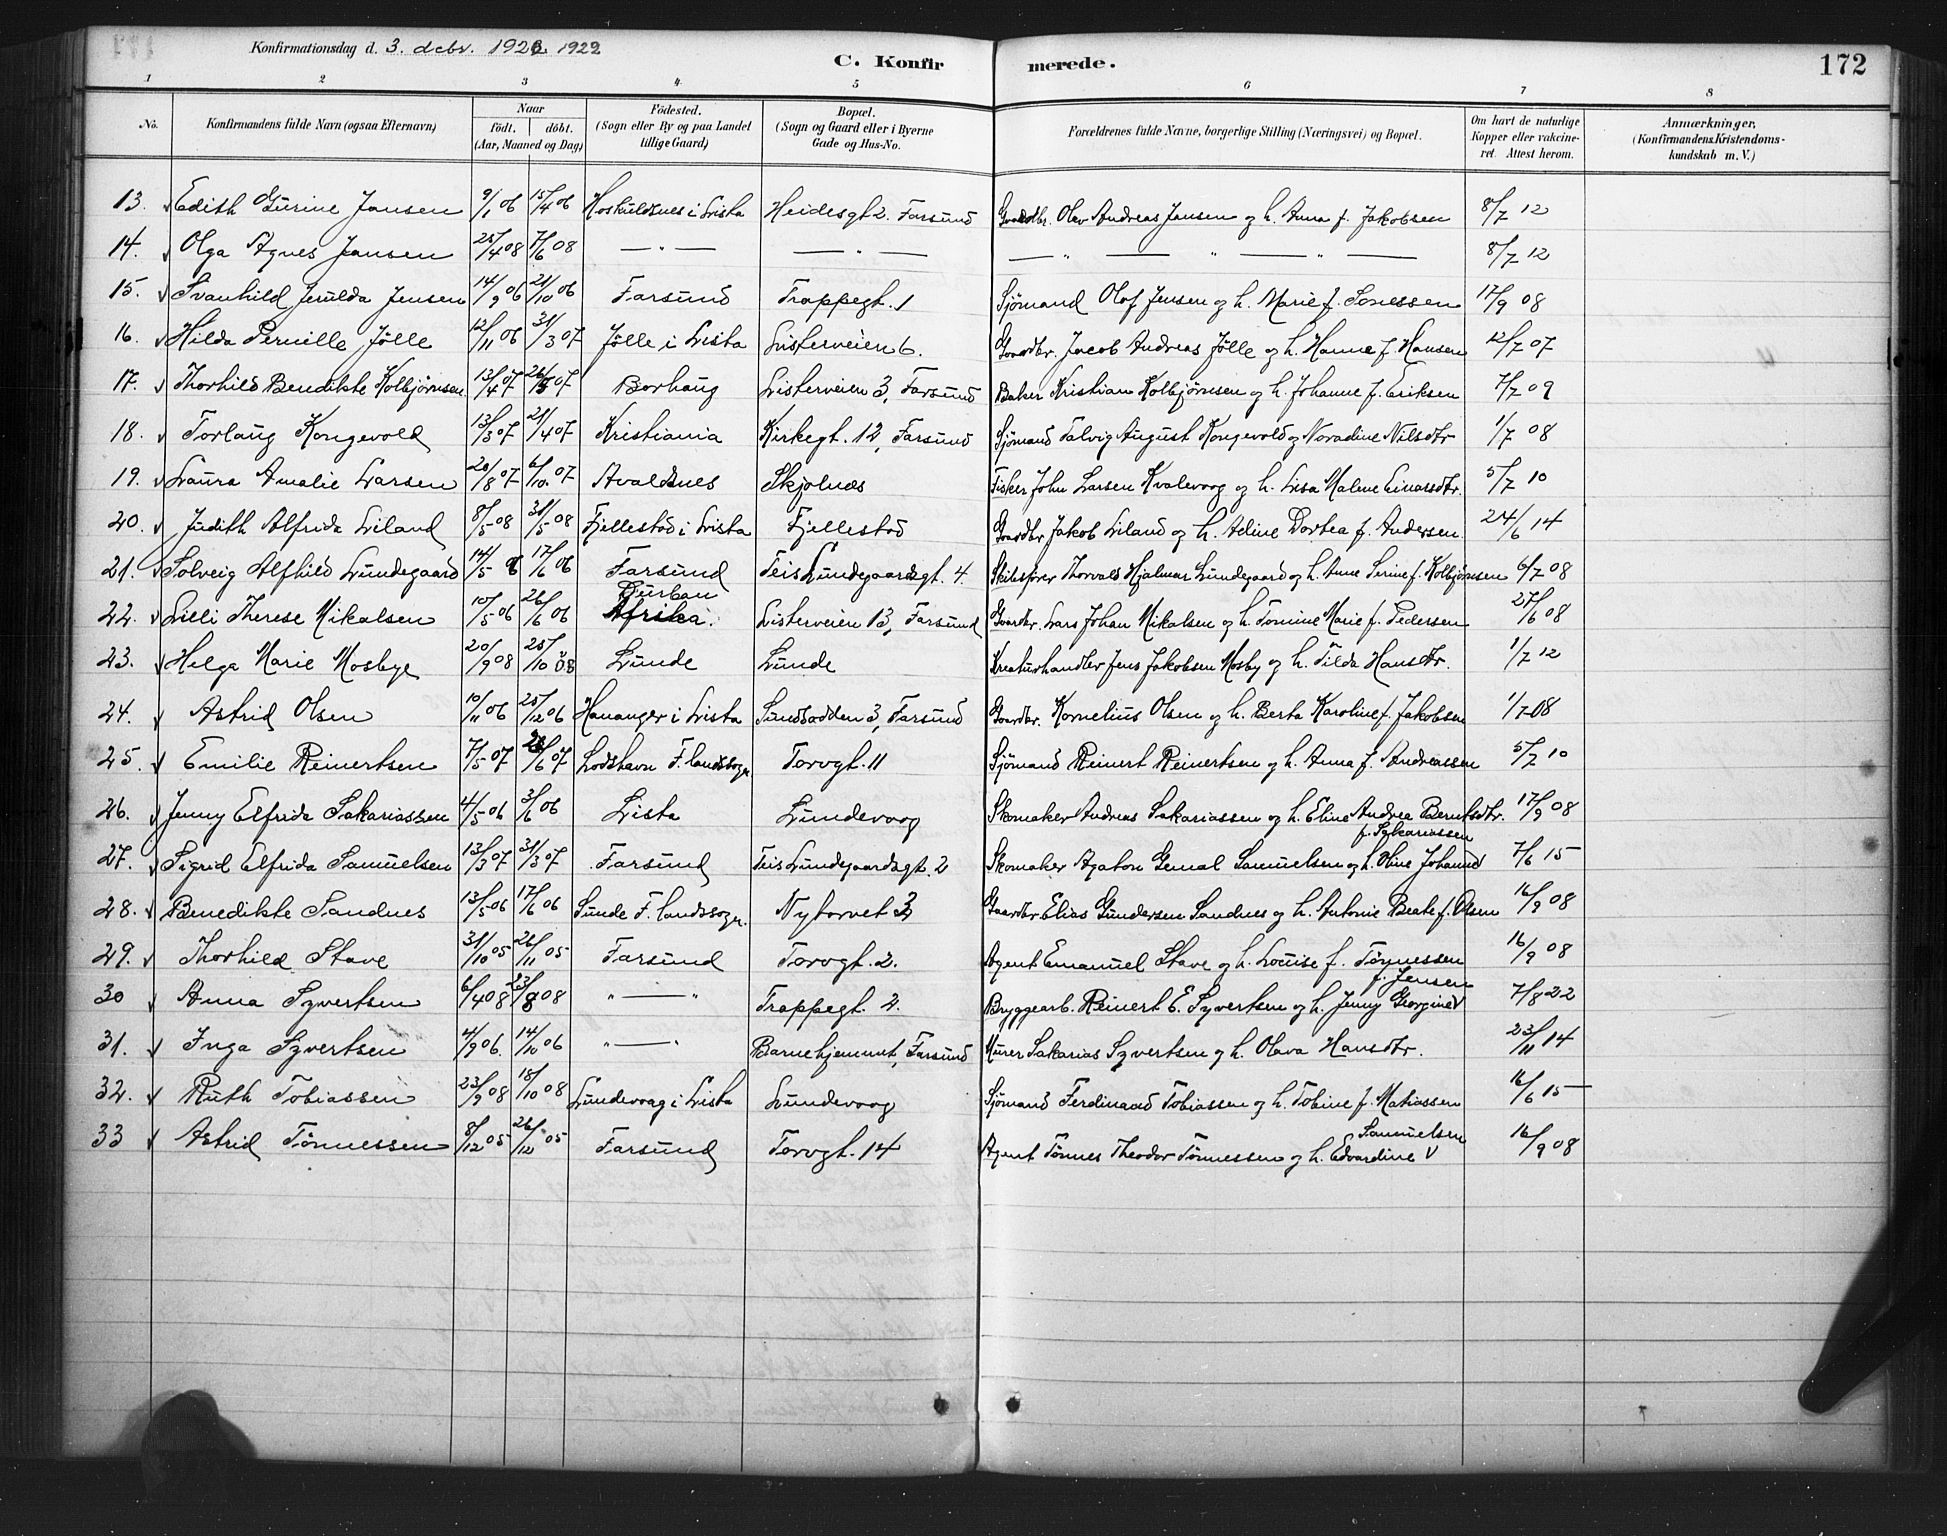 Konfirmationsdag d. 3. debr. 1922 1922
C. Konfirmerede. 172
1 2 3 4 5 6 7 8
No. Konfirmandens fulde Navn (ogsaa Efternavn) Naar født. døbt. (Aar, Maaned og Dag) Födested. (Sogn eller By og paa Landet tillige Gaard) Bopæl. (Sogn og Gaard eller i Byerne Gade og Hus-No. Forældrenes fulde Navne, borgerlige Stilling (Næringsvei) og Bopæl. Om havt de naturlige Kopper eller vakcineret. Attest herom. Anmærkninger, (Konfirmandens Kristendomskundskab m. V.)
13. Edith Gurine Jansen 9/1 06 15/4 06 Hoskuldsnes i Lista Heidesgt 2. Farsund Gaardbr. Olev Andreas Jansen og h. Anna f. Jakobsen 8/7 12
14. Olga Agnes Jansen 25/4 08 7/6 08 — " — — " — — " — " — " — 8/7 12
15. Svanhild Jerulda Jensen 14/9 06 21/10 06 Farsund Trappegt. 1 Sjömand Olaf Jensen og h. Marie f. Sonessen 17/9 08
16. Hilda Pernille Jölle 12/11 06 31/3 07 Jölle i Lista Listerveien 6. Gaardbr. Jacob Andreas Jölle og h. Hanna f. Hansen 12/7 07
17. Thorhild Bendikte Kolbjörnsen 13/4 07 26/5 07 Borhaug Listerveien 3, Farsund Baker Kristian Kolbjörnsen og h. Johanne f. Eriksen 7/7 09
18. Torlaug Kongevold 13/3 07 21/4 07 Kristiania Kirkegt. 12, Farsund Sjömand Talvig August Kongevold og Noradine Nilsdtr 1/7 08
19. Laura Amalie Larsen 20/8 07 6/10 07 Avaldsnes Skjolnæs Fisker John Larsen Kvalevaag og h. Lisa Malene Einarsdtr. 5/7 10
20. Judith Alfrida Liland 8/5 08 31/5 08 Fjellestad i Lista Fjellestad Gaardbr Jakob Liland og h. Adine Dortea f. Andersen 24/6 14
21. Solveig Alfhild Lundegaard 14/5 6 17/6 06 Farsund Teis Lundegaardsgt. 4 Skibsförer Thorvald Hjalmar Lundegaard og h. Anne Serine f. Kolbjörnsen 6/7 08
22. Lilli Therese Mikalsen 10/5 06 26/6 06 Durban Afrika. Listerveien 13, Farsund Gaardbr. Lars Johan Mikalsen og h. Tomine Marie f. Pedersen 27/6 08
23. Helga Marie Mosbye 20/9 08 25/10 08 Lunde Lunde Kreaturhandler Jens Jakobsen Mosby og h. Tilda Hansdtr. 1/7 12
24. Astrid Olsen 10/11 06 25/12 06 Hananger i Lista Sundsodden 3, Farsund Gaardbr. Kornelius Olsen og h. Berta Karoline f. Jakobsen 1/7 08
25. Emilie Reinertsen 7/5 07 /6 07 Lodshavn F. landssogn Torvgt. 11 Sjömand Reinert Reinertsen og h. Anna f. Andreassen 5/7 10
26. Jenny Elfrida Sakariassen 4/5 06 3/6 06 Lista Lundevaag Skomaker Andreas Sakariassen og h. Eline Andrea Berntsdtr. 17/9 08
27. Sigrid Elfrida Samuelsen 13/3 07 31/3 07 Farsund Teis Lundegaardsgt. 2 Skomaker Agaton Gemal Samuelsen og h. Oline Johanne f. Sakariassen 7/6 15
28. Benedikte Sandnes 13/5 06 17/6 06 Sunde F. landssogn. Nytorvet 2 Gaardbr Elias Gundersen Sandnes og h. Antonie Beate f. Olsen 16/9 08
29. Thorhild Stave 31/10 05 26/11 05 Farsund Torvgt. 2. Agent Emanuel Stave og h. Louise f. Tönnessen 16/9 08
30 Anna Syvertsen 6/4 08 23/8 08 " — " Trappegt. 2. Bryggearb. Reinert E. Syvertsen og h. Jenny Georgine f. Jensen 7/8 22
31. Inga Syvertsen 4/9 06. 14/10 06 " — " Barnehjemmet, Farsund Murer Sakarias Syvertsen og h. Olava Hansdtr. 23/11 14
32. Ruth Tobiassen 23/9 08 18/10 08 Lundevaag i Lista Lundevaag Sjömand Ferdinand Tobiassen og h. Tobine f. Matiassen 16/6 15
33 Astrid Tönnessen 8/12 05 26/12 05 Farsund Torvgt. 14 Agent Tönnes Theodor Tönnessen og h. Edvardine Samuelsen 16/9 08